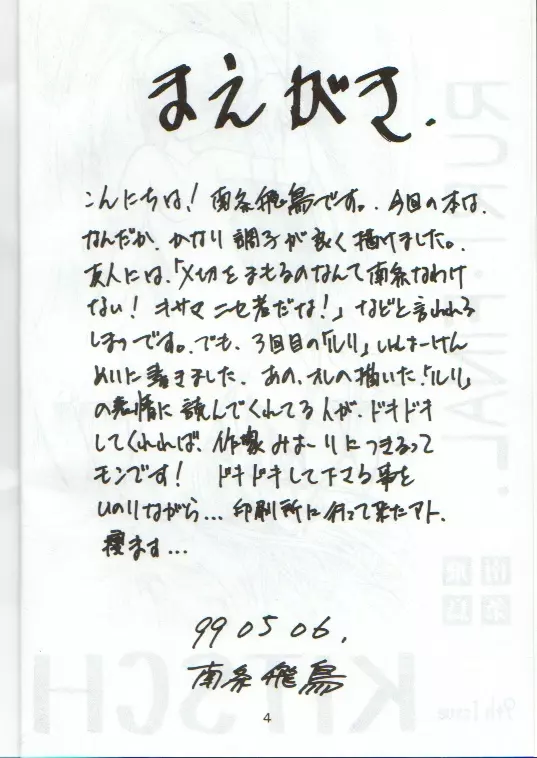 まえがき.
こんにちは! 南条飛鳥です。今回の本は、
なんだか、かなり調子が良く描けました。
友人には、「〆切をまもるのなんて南条なわけ
ない! キサマ ニセ者だな!」などと言われる
しまつです。でも、3回目の「ルリ」しんけん
めいに書きました。あの、オレの描いた「ルリ」
の表情に読んでくれてる人が、ドキドキ
してくれれば、作家みょーりにつきるって
モンです! ドキドキして下さる事を
いのりながら... 印刷所に行って来たアト、
寝ます...
99 05 06,
南条飛鳥
4
RURI・FINAL.
南条
飛鳥
KITSCH
9th Issue